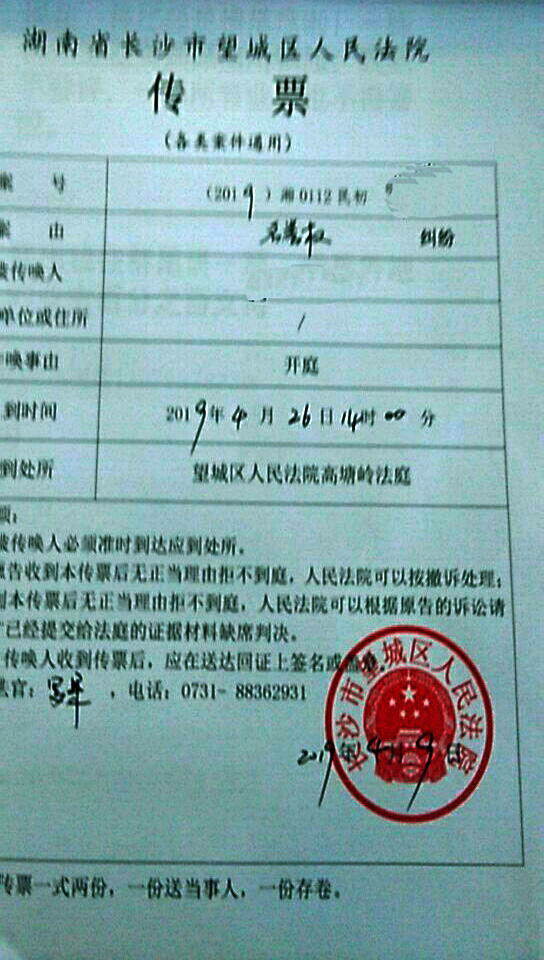 湖南省长沙市望城区人民法院
传 票
(各类案件通用)
号 (2019)湘0112民初
由 名誉权 纠纷
被传唤人
单位或住所 /
唤事由 开庭
到时间 2019年4月26日14时00分
到处所 望城区人民法院高塘岭法庭
被传唤人必须准时到达应到处所。
原告收到本传票后无正当理由拒不到庭,人民法院可以按撤诉处理;
到本传票后无正当理由拒不到庭,人民法院可以根据原告的诉讼请
已经提交给法庭的证据材料缺席判决。
传唤人收到传票后,应在送达回证上签名或
官: ,电话:0731-88362931
长沙市望城区人民法院
2019年4月9日
传票一式两份,一份送当事人,一份存卷。